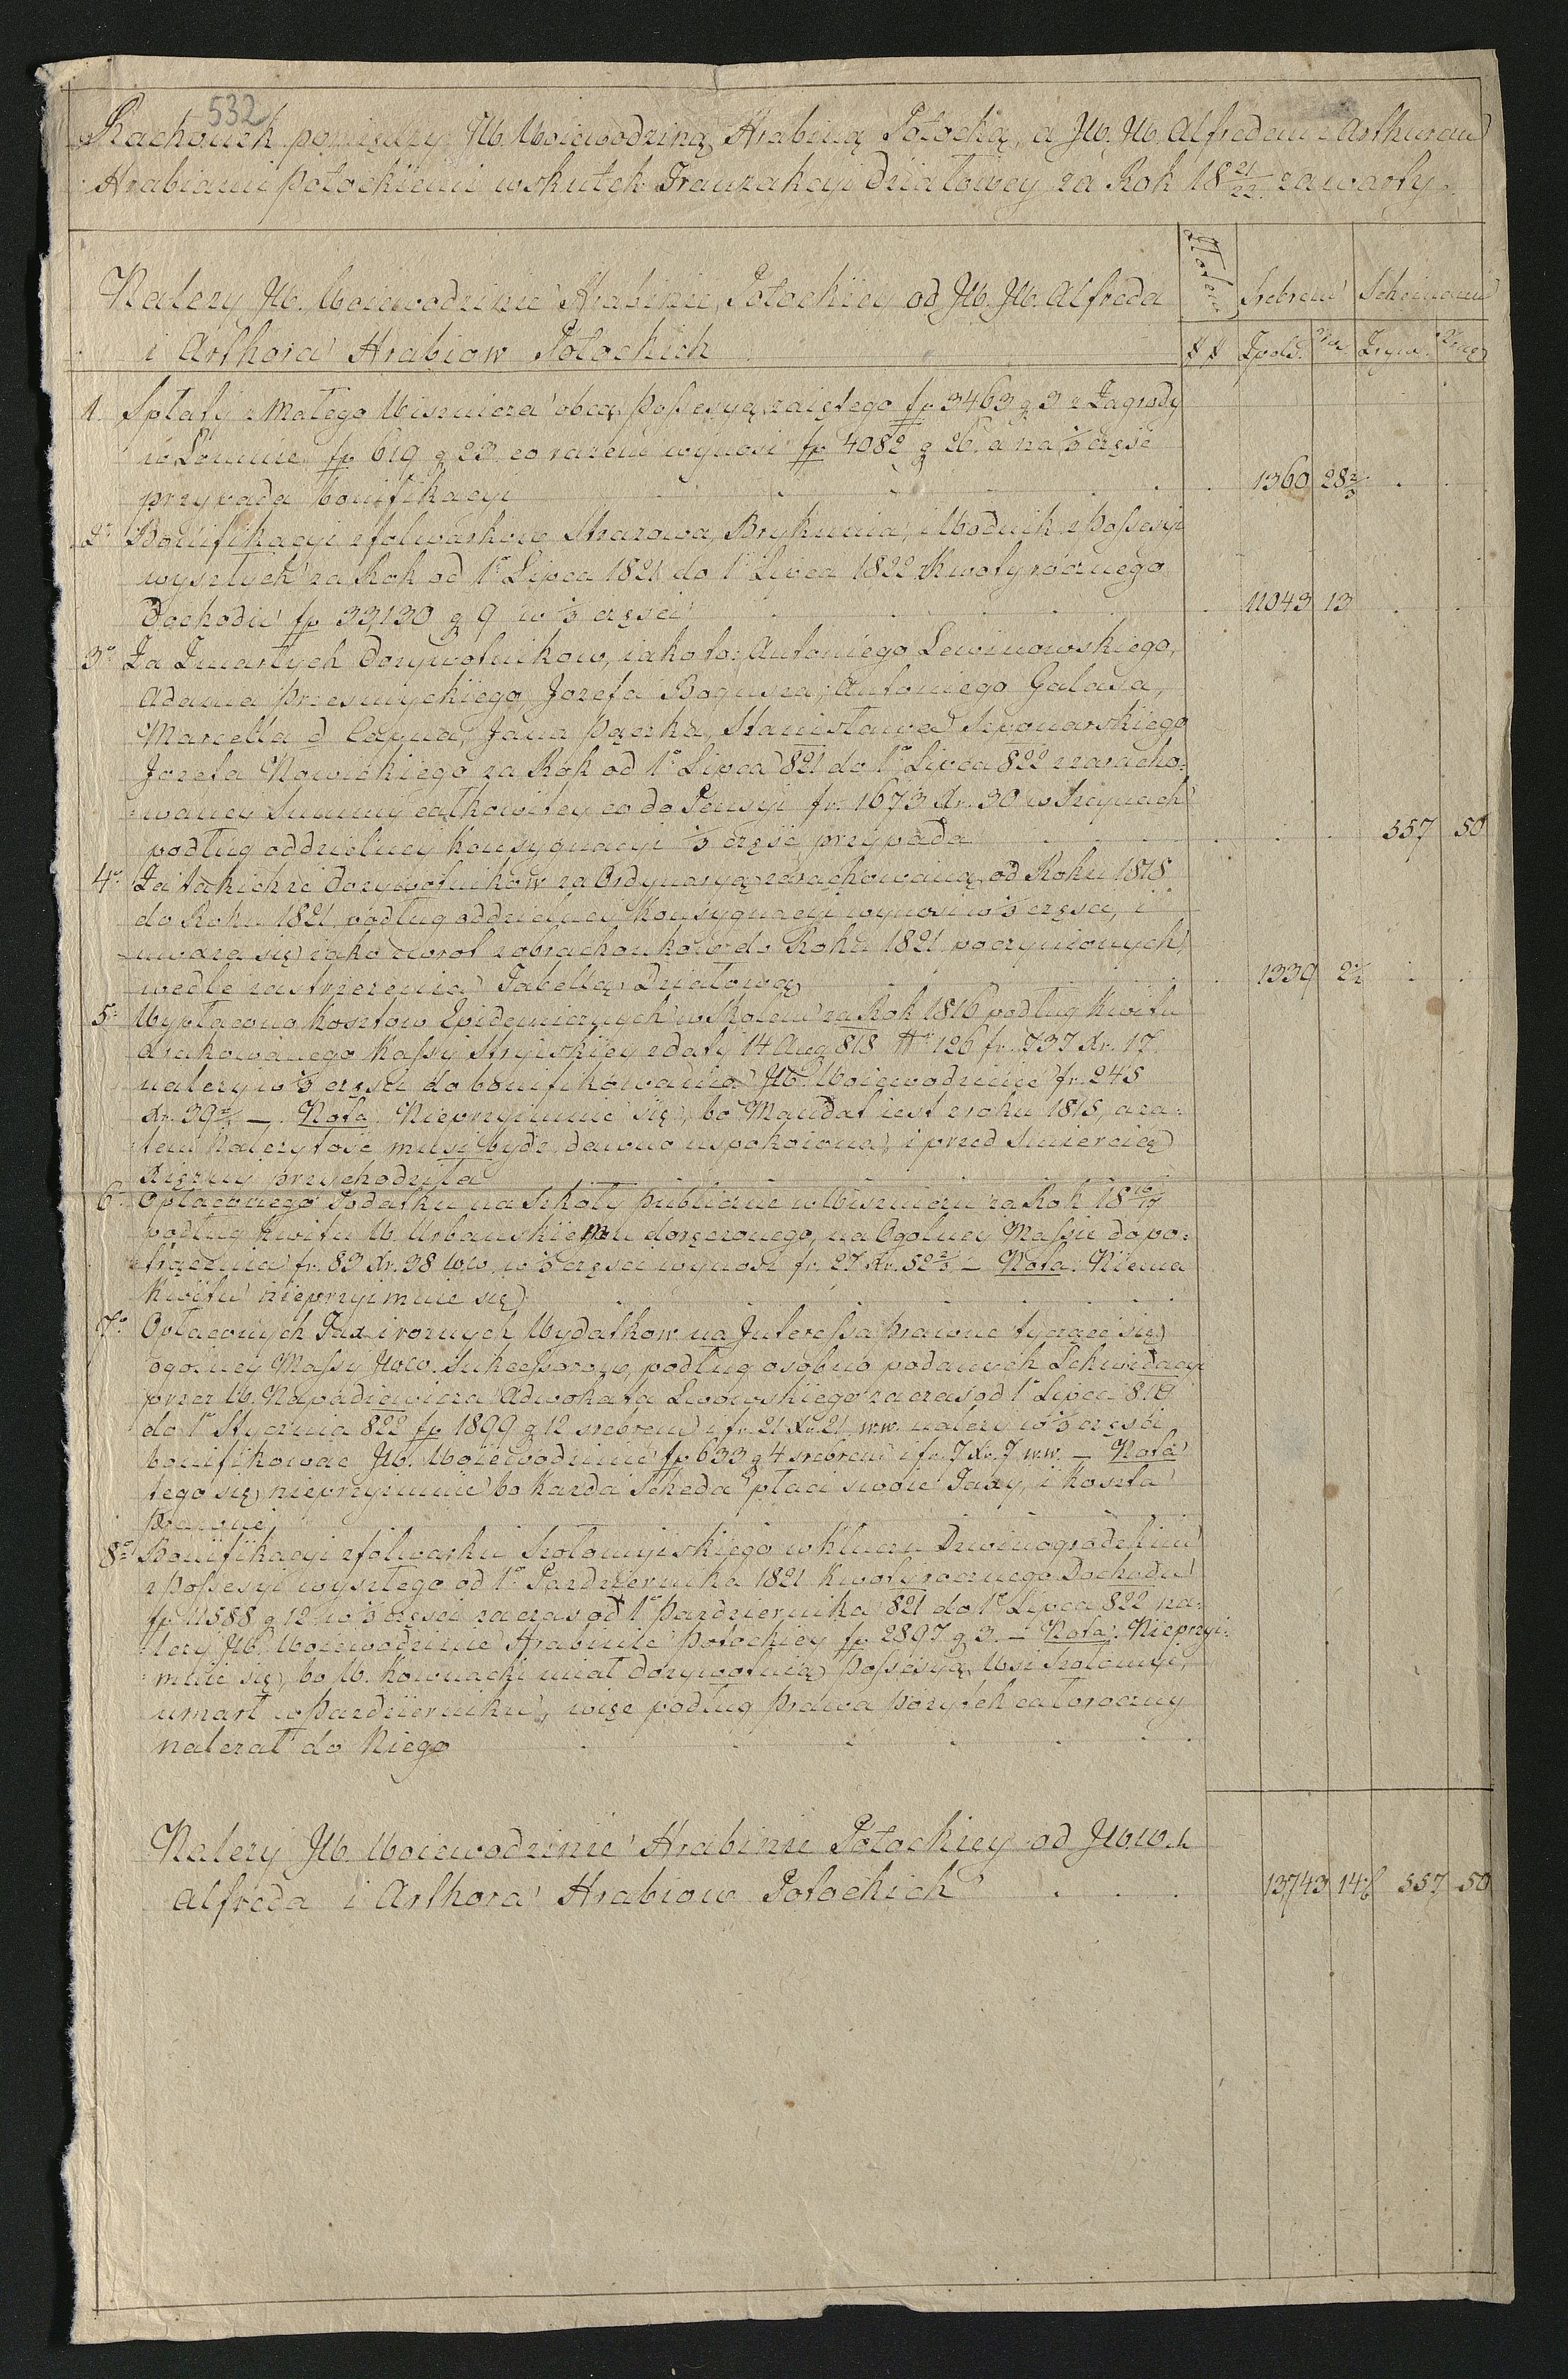 532
Rachonek pomiędzy JW. Woiewodziną Hrabiną Potocką, a JW. JW. Alfredem i Arthurem
Hrabiami Potockiemi wskutek Tranzakcyi Działowey za Rok 18 21/22 zawarty.
Należy JW. Woiewodzinie Hrabinie Potockiey od JW. JW. Alfreda
i Arthora Hrabiow Potockich
Srebrem Scheinami
## Zpols. Xr
1. Spłaty z Małego Wisznicza obcą Possesyą zaiętego fp 3463 g 3 z Zagrody
w Łomnie fp 619 g 23. co razem wynosi fp 4082 g 26. a na ⅓ częśc
przypada bonifikacyi 1360 28⅔
2o Bonifikacyi z folwarkow Strazowa, Brykunia, i Wodnik z Possesyi
wyszłych za Rok od 1o Lipca 1821 do 1o Lipca 1822 z kwoty rocznego
Dochodu fp 33130 g 9 w ⅓ części 11043 13
3o Za Zmarłych Dozywotnikow, iako to: Antoniego Lewinowskiego,
Adama Przesmyckiego, Jozefa Bogusza, Antoniego Galasa,
Marcella d Capua, Jana Pączka, Stanisława Szponarskiego
Jozefa Nowickiego za Rok od 1o Lipca 821 do 1o Lipca 822 z zaracho-
waney Summy całkowitey co do Pensyi fr. 1673 Xr. 30 w Szeynach
podług oddzielney Konsygnacyi ⅓ częśc przypada 557 50
4o Za takichże Dozywotnikow za Ordynaryą zarachowaną od Roku 1818
do Roku 1821 podług oddzielney Konsygnacyi wynosi w ⅓ części, i
uwaza się iako zwrot z obrachonkow do Roku 1821 poczynionych
wedle zastrzezenia Tabellą Działową 1339 2½
5o Wypłacono kosztow Epidemicznych w Skolem za Rok 1816 podług Kwitu
drukowanego Kassy Stryiskiey z daty 14 Aug 818 N 126 fr. 737 Xr. 17
należy w ⅓ części do bonifikowania JW. Woiewodzinie fr. 245
Xr. 39⅔ — Nota. Nieprzyimuie się, bo Mandat iest z roku 1815, a za-
tem Należytośc musi bydź dawno uspokoiona, i przed Smiercią
Xiężny przychodziła
6o Opłaconego Podatku na Szkoły publiczne w Wiszniczu za Rok 18 16/17
podług Kwitu W. Urbanskiemu doręczonego, na Ogolney Massie do po-
trącenia fr. 83 Xr. 38 w.w. w ⅓ części wynosi fr. 27 Xr. 52⅔ — Nota. Niema
Kwitu nieprzyimuie się
7o Opłaconych Tax i roznych Wydatkow na Interessa Prawne tyczące się
ogolney Massy JWW. Sukcessorow, podług osobno podanych Lekwidacyi
przez W. Napadiewicza Adwokata Lwowskiego za czas od 1o Lipca 819
do 1o Stycznia 822 fp 1899 g 12 srebrem i fr. 21 Xr. 21 w.w. należy w ⅓ części
bonifikowac JW. Woiewodzinie fp 633 g 4 srebrem i fr. 7 Xr. 7 w.w. — Nota
tego się nieprzyimuie bo Kazda Scheda płaci swoie Taxy, i koszta
Prawne
8o Bonifikacyi z folwarku Szołomyiskiego w kluczu Dzwinogrodzkim
z Possesyi wyszłego od 1o Pazdziernika 1821 kwoty rocznego Dochodu
fp 11588 g 12 w ⅓ części za czas od 1o Pazdziernika 821 do 1o Lipca 822 na-
leży JW. Woiewodzinie Hrabinie Potockiey fp 2897 g 3. — Nota. Nieprzyi-
muie się, bo W. Kownacki miał dozywotnią Possesyą Wsi Szołomyi,
umarł w Pazdzierniku, więc podług Prawa Pozytek całoroczny
nalezał do Niego
Należy JW. Woiewodzinie Hrabinie Potockiey od JWW.
Alfreda i Arthora Hrabiow Potockich 13743 14 1/6 557 50